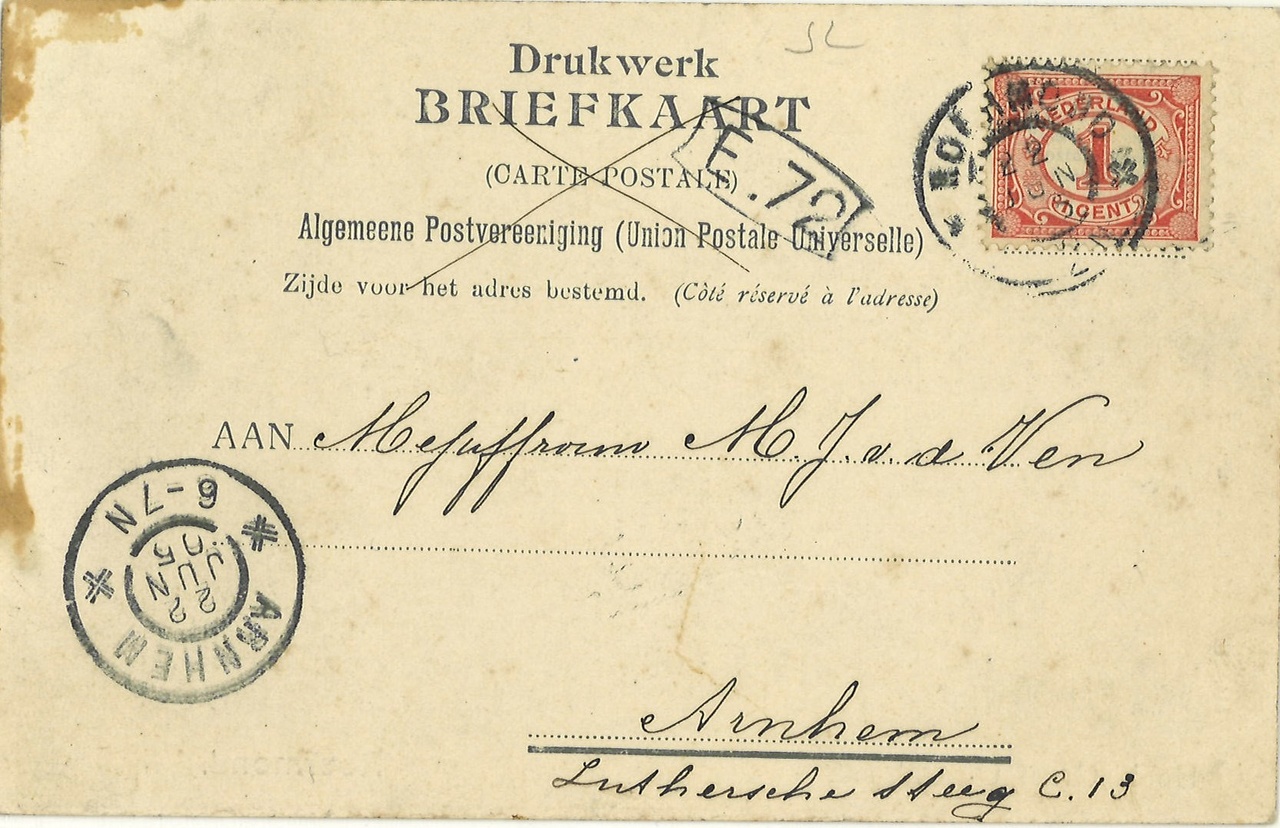 Drukwerk
BRIEFKAART
(CARTE POSTALE)
E.72
Algemeene Postvereeniging (Union Postale Universelle)
Zijde voor het adres bestemd. (Côté réservé à l'adresse)
NEDERLAND
1
CENT
AAN Mejuffrouw M. J. v. d. Ven
6-7N
22
JUN
05
ARNHEM
Arnhem
Luthersche steeg C. 13